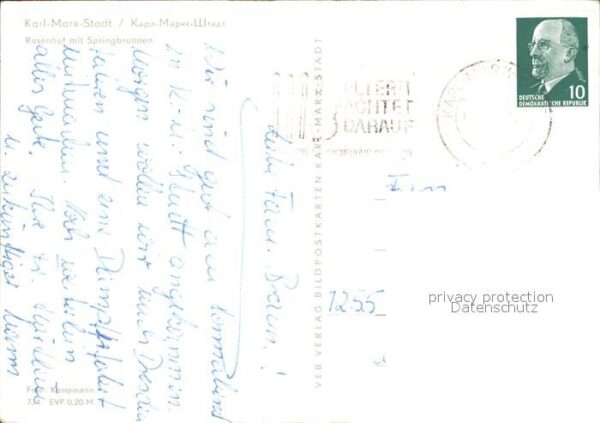 Karl-Marx-Stadt / Карл-Маркс-Штадт
Rosenhof mit Springbrunnen
Liebe Fam. Braun!
Wir sind gut am Sonnabend
in K.-M.-Stadt angekommen.
Morgen wollen wir nach Dresden
fahren und eine Dampferfahrt
mitmachen.
alles Gute. Ihre
u.
Foto: Kampmann
734 EVP 0,20 M
VEB VERLAG BILDPOSTKARTEN KARL-MARX-STADT
ELTERN
ACHTET
DARAUF
KARL-MARX-
10
DEUTSCHE
DEMOKRATISCHE REPUBLIK
1255
privacy protection
Datenschutz